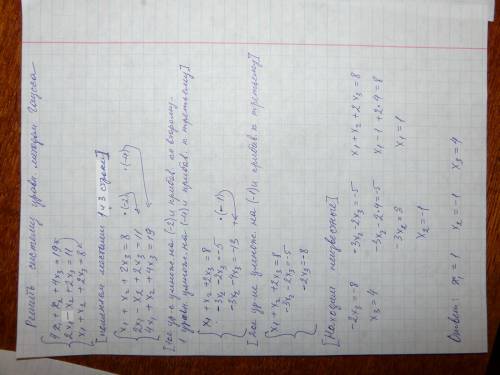 Решить систему уравн. методом Гаусса
4x₁ + x₂ + 4x₃ = 19
2x₁ - x₂ + 2x₃ = 11
x₁ + x₂ + 2x₃ = 8
[поменяем местами 1 и 3 строки]
x₁ + x₂ + 2x₃ = 8 ·(-2) ·(-4)
2x₁ - x₂ + 2x₃ = 11
4x₁ + x₂ + 4x₃ = 19
[1ое ур-е умнож. на (-2) и прибав. ко второму.
1 уравн. умнож. на (-4) и прибав. к третьему]
x₁ + x₂ + 2x₃ = 8
-3x₂ - 2x₃ = -5 ·(-1)
-3x₂ - 4x₃ = -13
ур-ие умнож. на (-1) и прибав. к третьему]
x₁ + x₂ + 2x₃ = 8
-3x₂ - 2x₃ = -5
-2x₃ = -8
[Находим неизвестные]
-2x₃ = -8 -3x₂ - 2x₃ = -5 x₁ + x₂ + 2x₃ = 8
x₃ = 4 -3x₂ - 2·4 = -5 x₁ - 1 + 2·4 = 8
-3x₂ = 3 x₁ = 1
x₂ = -1
Ответ: x₁ = 1 x₂ = -1 x₃ = 4